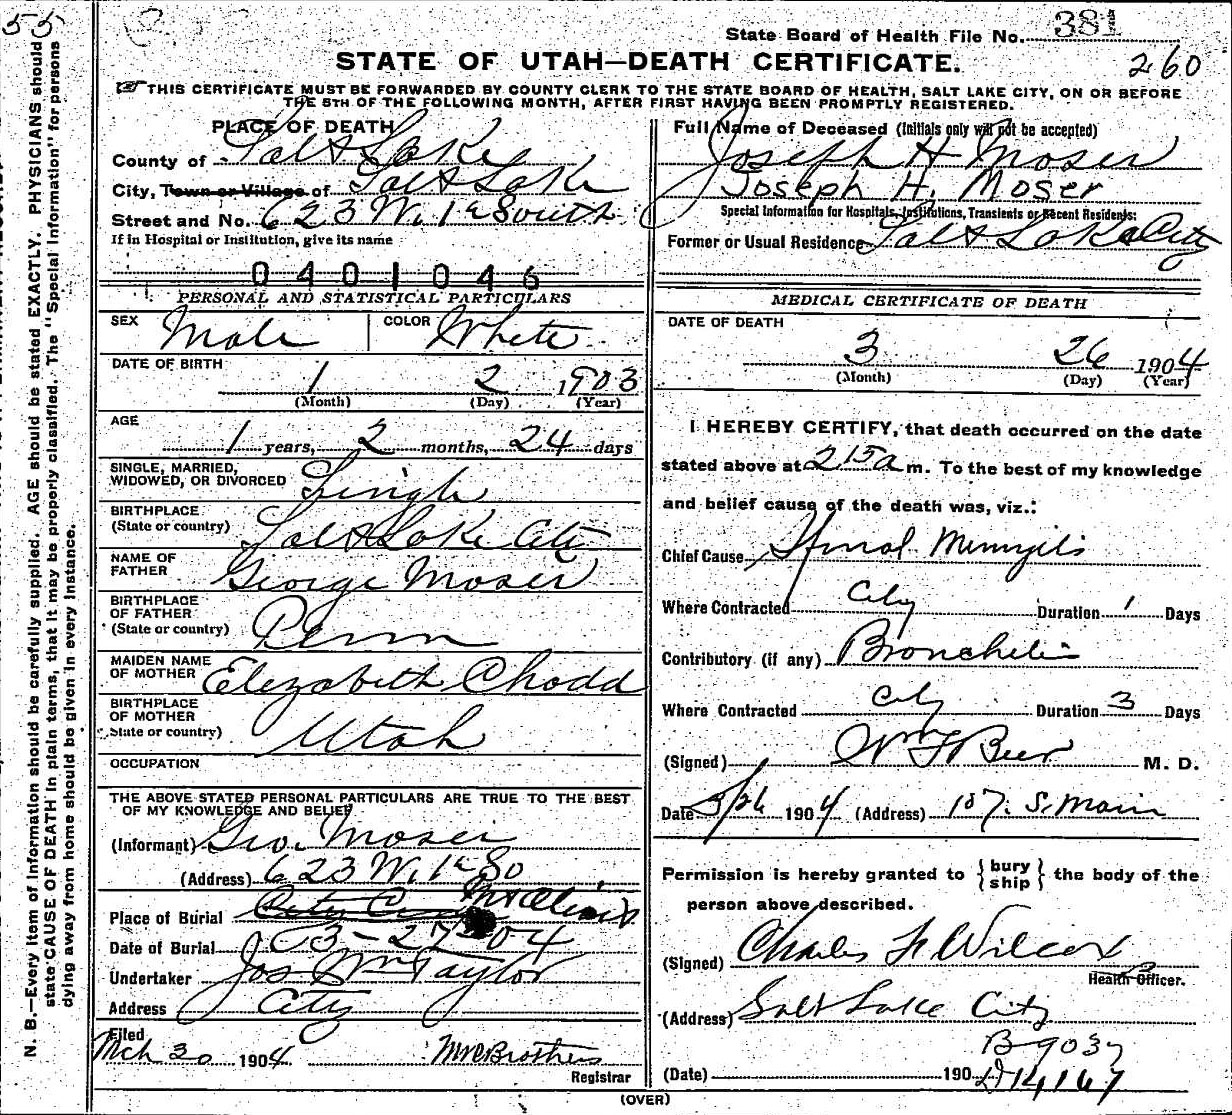 55
State Board of Health File No. 381
STATE OF UTAH—DEATH CERTIFICATE.
260
THIS CERTIFICATE MUST BE FORWARDED BY COUNTY CLERK TO THE STATE BOARD OF HEALTH, SALT LAKE CITY, ON OR BEFORE
THE 5TH OF THE FOLLOWING MONTH, AFTER FIRST HAVING BEEN PROMPTLY REGISTERED.
N. B.—Every item of information should be carefully supplied. AGE should be stated EXACTLY. PHYSICIANS should
state CAUSE OF DEATH in plain terms, that it may be properly classified. The "Special Information" for persons
dying away from home should be given in every instance.
PLACE OF DEATH
County of Salt Lake
City, Town or Village of Salt Lake
Street and No. 623 W. 1st South
If in Hospital or Institution, give its name
0401046
PERSONAL AND STATISTICAL PARTICULARS
SEX Male COLOR White
DATE OF BIRTH
1 2 1903
(Month) (Day) (Year)
AGE
1 years, 2 months, 24 days
SINGLE, MARRIED,
WIDOWED, OR DIVORCED Single
BIRTHPLACE
(State or country) Salt Lake City
NAME OF
FATHER George Moser
BIRTHPLACE
OF FATHER
(State or country) Penn
MAIDEN NAME
OF MOTHER Elizabeth Chodd
BIRTHPLACE
OF MOTHER
State or country) Utah
OCCUPATION
THE ABOVE STATED PERSONAL PARTICULARS ARE TRUE TO THE BEST
OF MY KNOWLEDGE AND BELIEF
(Informant) Geo. Moser
(Address) 623 W. 1st So
Place of Burial City Cem Mt Olivet
Date of Burial 03-27-04
Undertaker Jos Wm Taylor
Address City
Filed
Mch 30 1904
Registrar
Full Name of Deceased (Initials only will not be accepted)
Joseph H Moser
Joseph H. Moser
Special Information for Hospitals, Institutions, Transients or Recent Residents:
Former or Usual Residence Salt Lake City
MEDICAL CERTIFICATE OF DEATH
DATE OF DEATH
3 26 1904
(Month) (Day) (Year)
I HEREBY CERTIFY, that death occurred on the date
stated above at 2 15a m. To the best of my knowledge
and belief cause of the death was, viz.:
Chief Cause Spinal Meningitis
Where Contracted City Duration 1 Days
Contributory (if any) Bronchitis
Where Contracted City Duration 3 Days
(Signed) Wm F Beer M. D.
Date 3/26 1904 (Address) 107. S. Main
Permission is hereby granted to { bury ship } the body of the
person above described.
(Signed) Charles F Wilcox
Health Officer.
(Address) Salt Lake City
B 9037
(Date) 190 D 14167
(OVER)